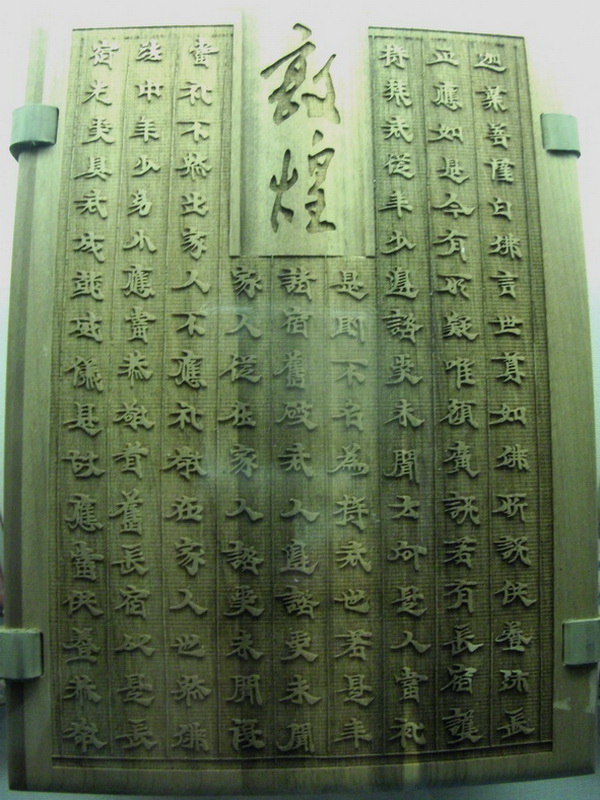 敦煌
迦葉菩薩白佛言世尊如佛所說供養師長
正應如是今有所疑唯願廣說若有長宿護
持禁戒從年少邊諮受未聞云何是人當礼
是則不名為持戒也若是年
諸宿舊破戒人邊諮受未聞
家人從在家人諮受未聞復
當礼不然出家人不應礼敬在家人也然佛
法中年少幼小應當恭敬耆舊長宿以是長
宿先受具戒成就威儀是故應當供養恭敬